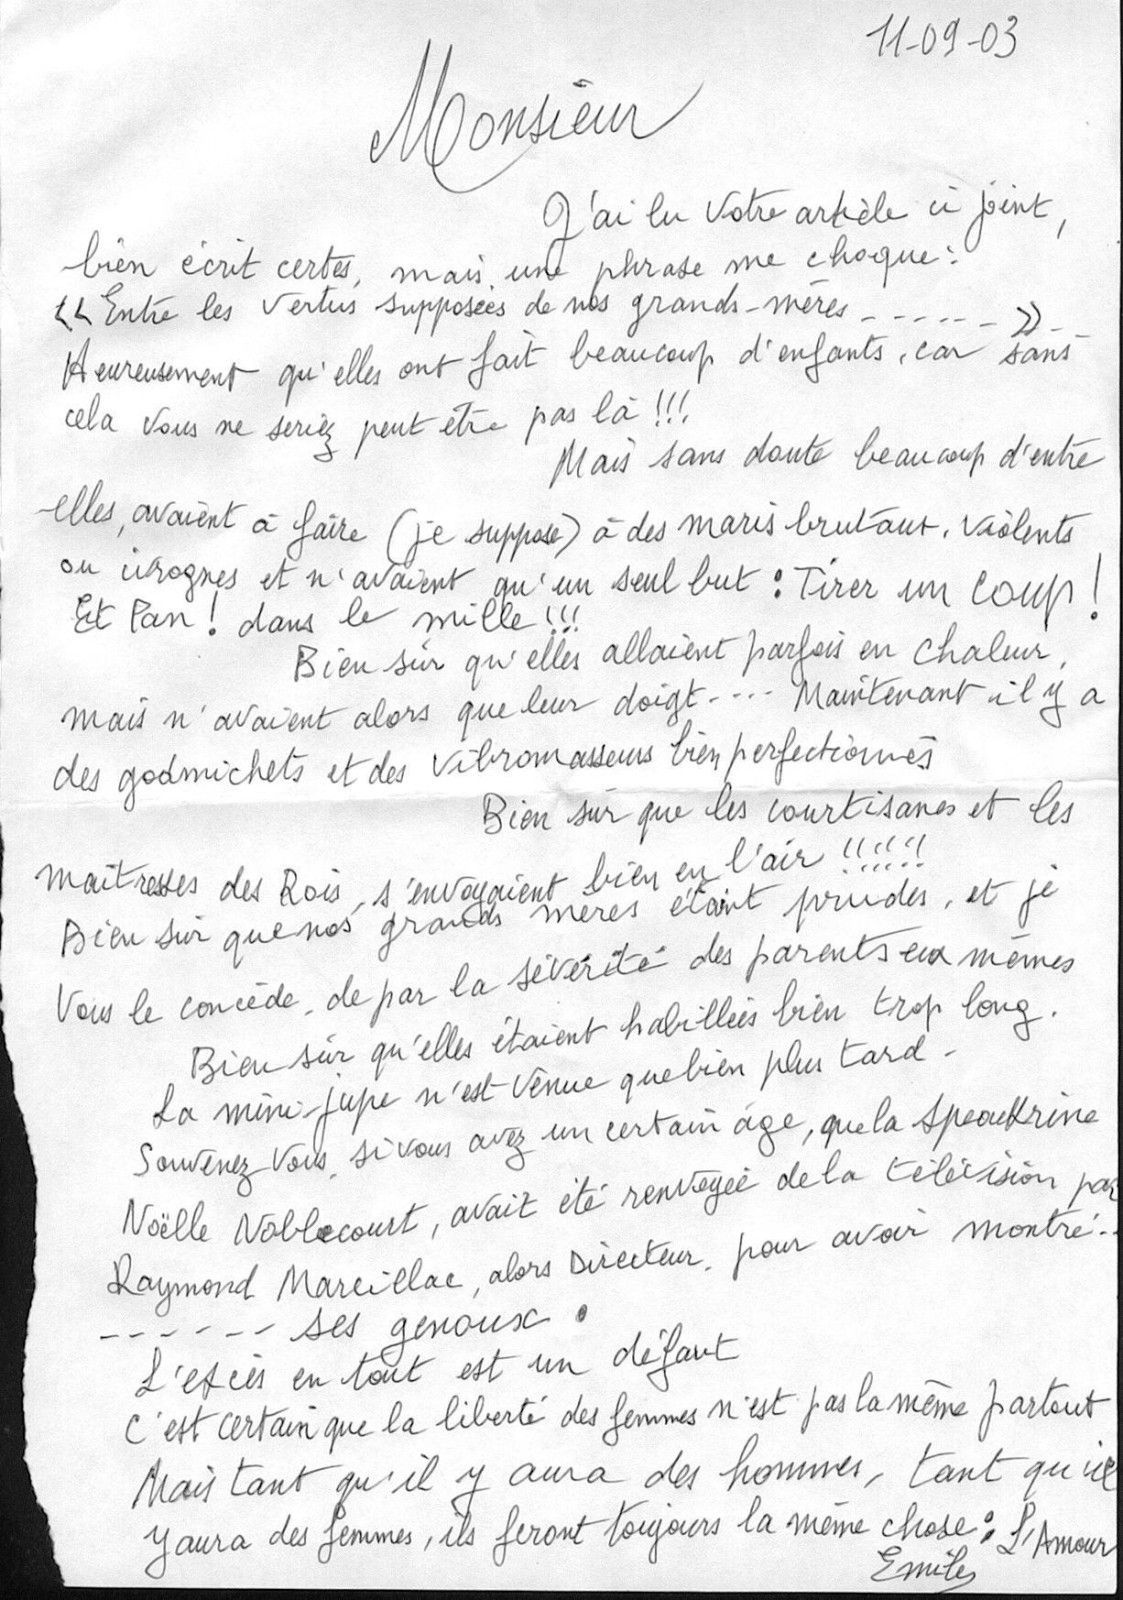 11-09-03
Monsieur
J'ai lu votre article ci joint,
bien écrit certes, mais une phrase me choque :
<< Entre les vertus supposées de nos grands-mères ------ >> -
Heureusement qu'elles ont fait beaucoup d'enfants, car sans
cela vous ne seriez peut être pas là !!!
Mais sans doute beaucoup d'entre
elles, avaient à faire (je suppose) à des maris brutaux, violents
ou ivrognes et n'avaient qu'un seul but : Tirer un coup !
Et Pan ! dans le mille !!!
Bien sûr qu'elles allaient parfois en chaleur,
mais n'avaient alors que leur doigt.... Maintenant il y a
des godmichets et des vibromasseurs bien perfectionnés
Bien sûr que les courtisanes et les
maitresses des Rois, s'envoyaient bien en l'air !!!!!!
Bien sûr que nos grands mères étaint prudes, et je
vous le concède, de par la sévérité des parents eux mêmes
Bien sûr qu'elles étaient habillées bien trop long.
La mini-jupe n'est venue que bien plus tard -
Souvenez-vous, si vous avez un certain âge, que la speaktrine
Noëlle Noblecourt, avait été renvoyée de la télévision par
Raymond Marcillac, alors Directeur, pour avoir montré..
------ ses genoux.
L'excès en tout est un défaut
C'est certain que la liberté des femmes n'est pas la même partout
Mais tant qu'il y aura des hommes, tant qu'il
y aura des femmes, ils feront toujours la même chose : L'Amour
Emile